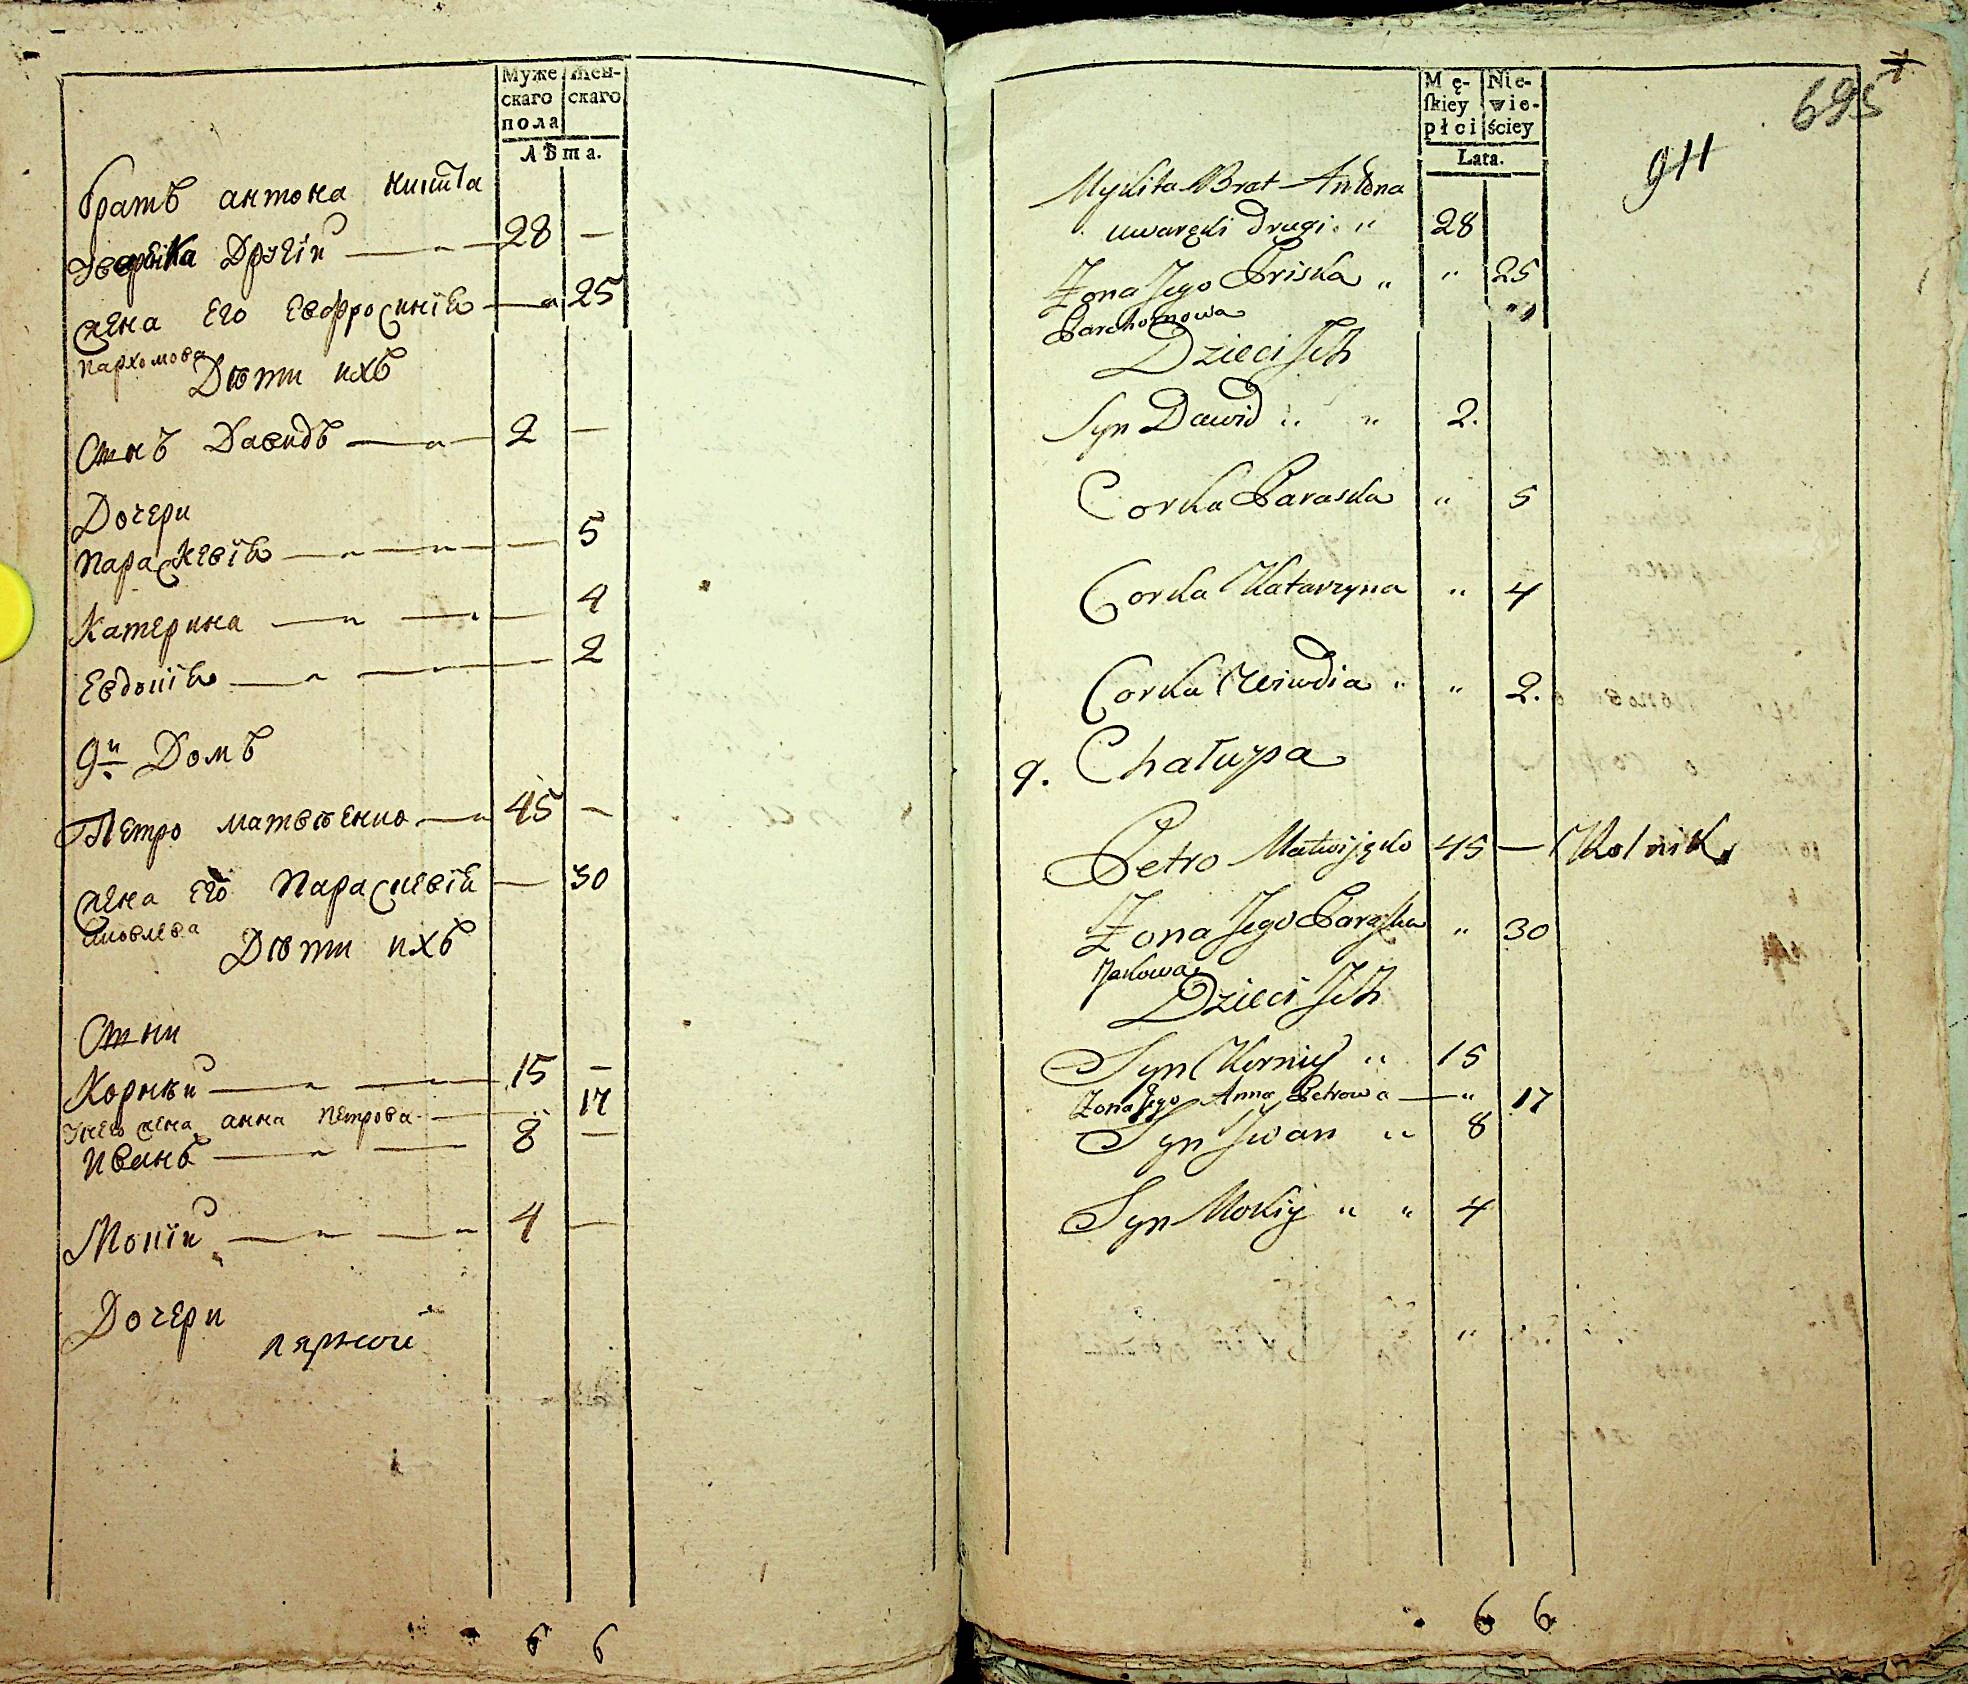 Муже
скаго
пола
жен-
скаго
Лѣта.
братъ антона никита
Уварѣка Другій 28 —
жена его Евфросинїѧ 25
пархомова
Дѣти ихъ
Сынъ Давидъ 2 —
Дочери
Параскевїѧ 5
Катерина 4
Евдокїѧ 2
9й Домъ
Петро матвѣенко 45 —
жена его Параскевїѧ 30
яковлева
Дѣти ихъ
Сыни
Корнѣй 15 —
У него жена анна петрова 17
иванъ 8 —
Мокїй 4 —
Дочери
6 6
Mę-
ſkiey
płci
Nie-
wie-
ściey
Lata.
695
911
Mykita Brat Antona
uwaręki drugi " 28
Żona Jego Priska " " 25
Parchomowa
Dzieci Ich
Syn Dawid " " 2.
Corka Paraska " 5
Corka Katarzyna " 4
Corka Wiwdia " " 2.
9. Chałupa
Petro Matwijęko 45 — Rolnik
Żona Jego Paraska " 30
Jakowa
Dzieci Ich
Syn Korniy " 15
Żona Jego Anna Petrowa — " 17
Syn Iwan " 8
Syn Mokiy " " 4
6 6